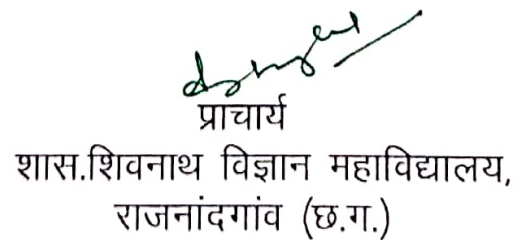 प्राचार्य
शास.शिवनाथ विज्ञान महाविद्यालय,
राजनांदगांव (छ.ग.)